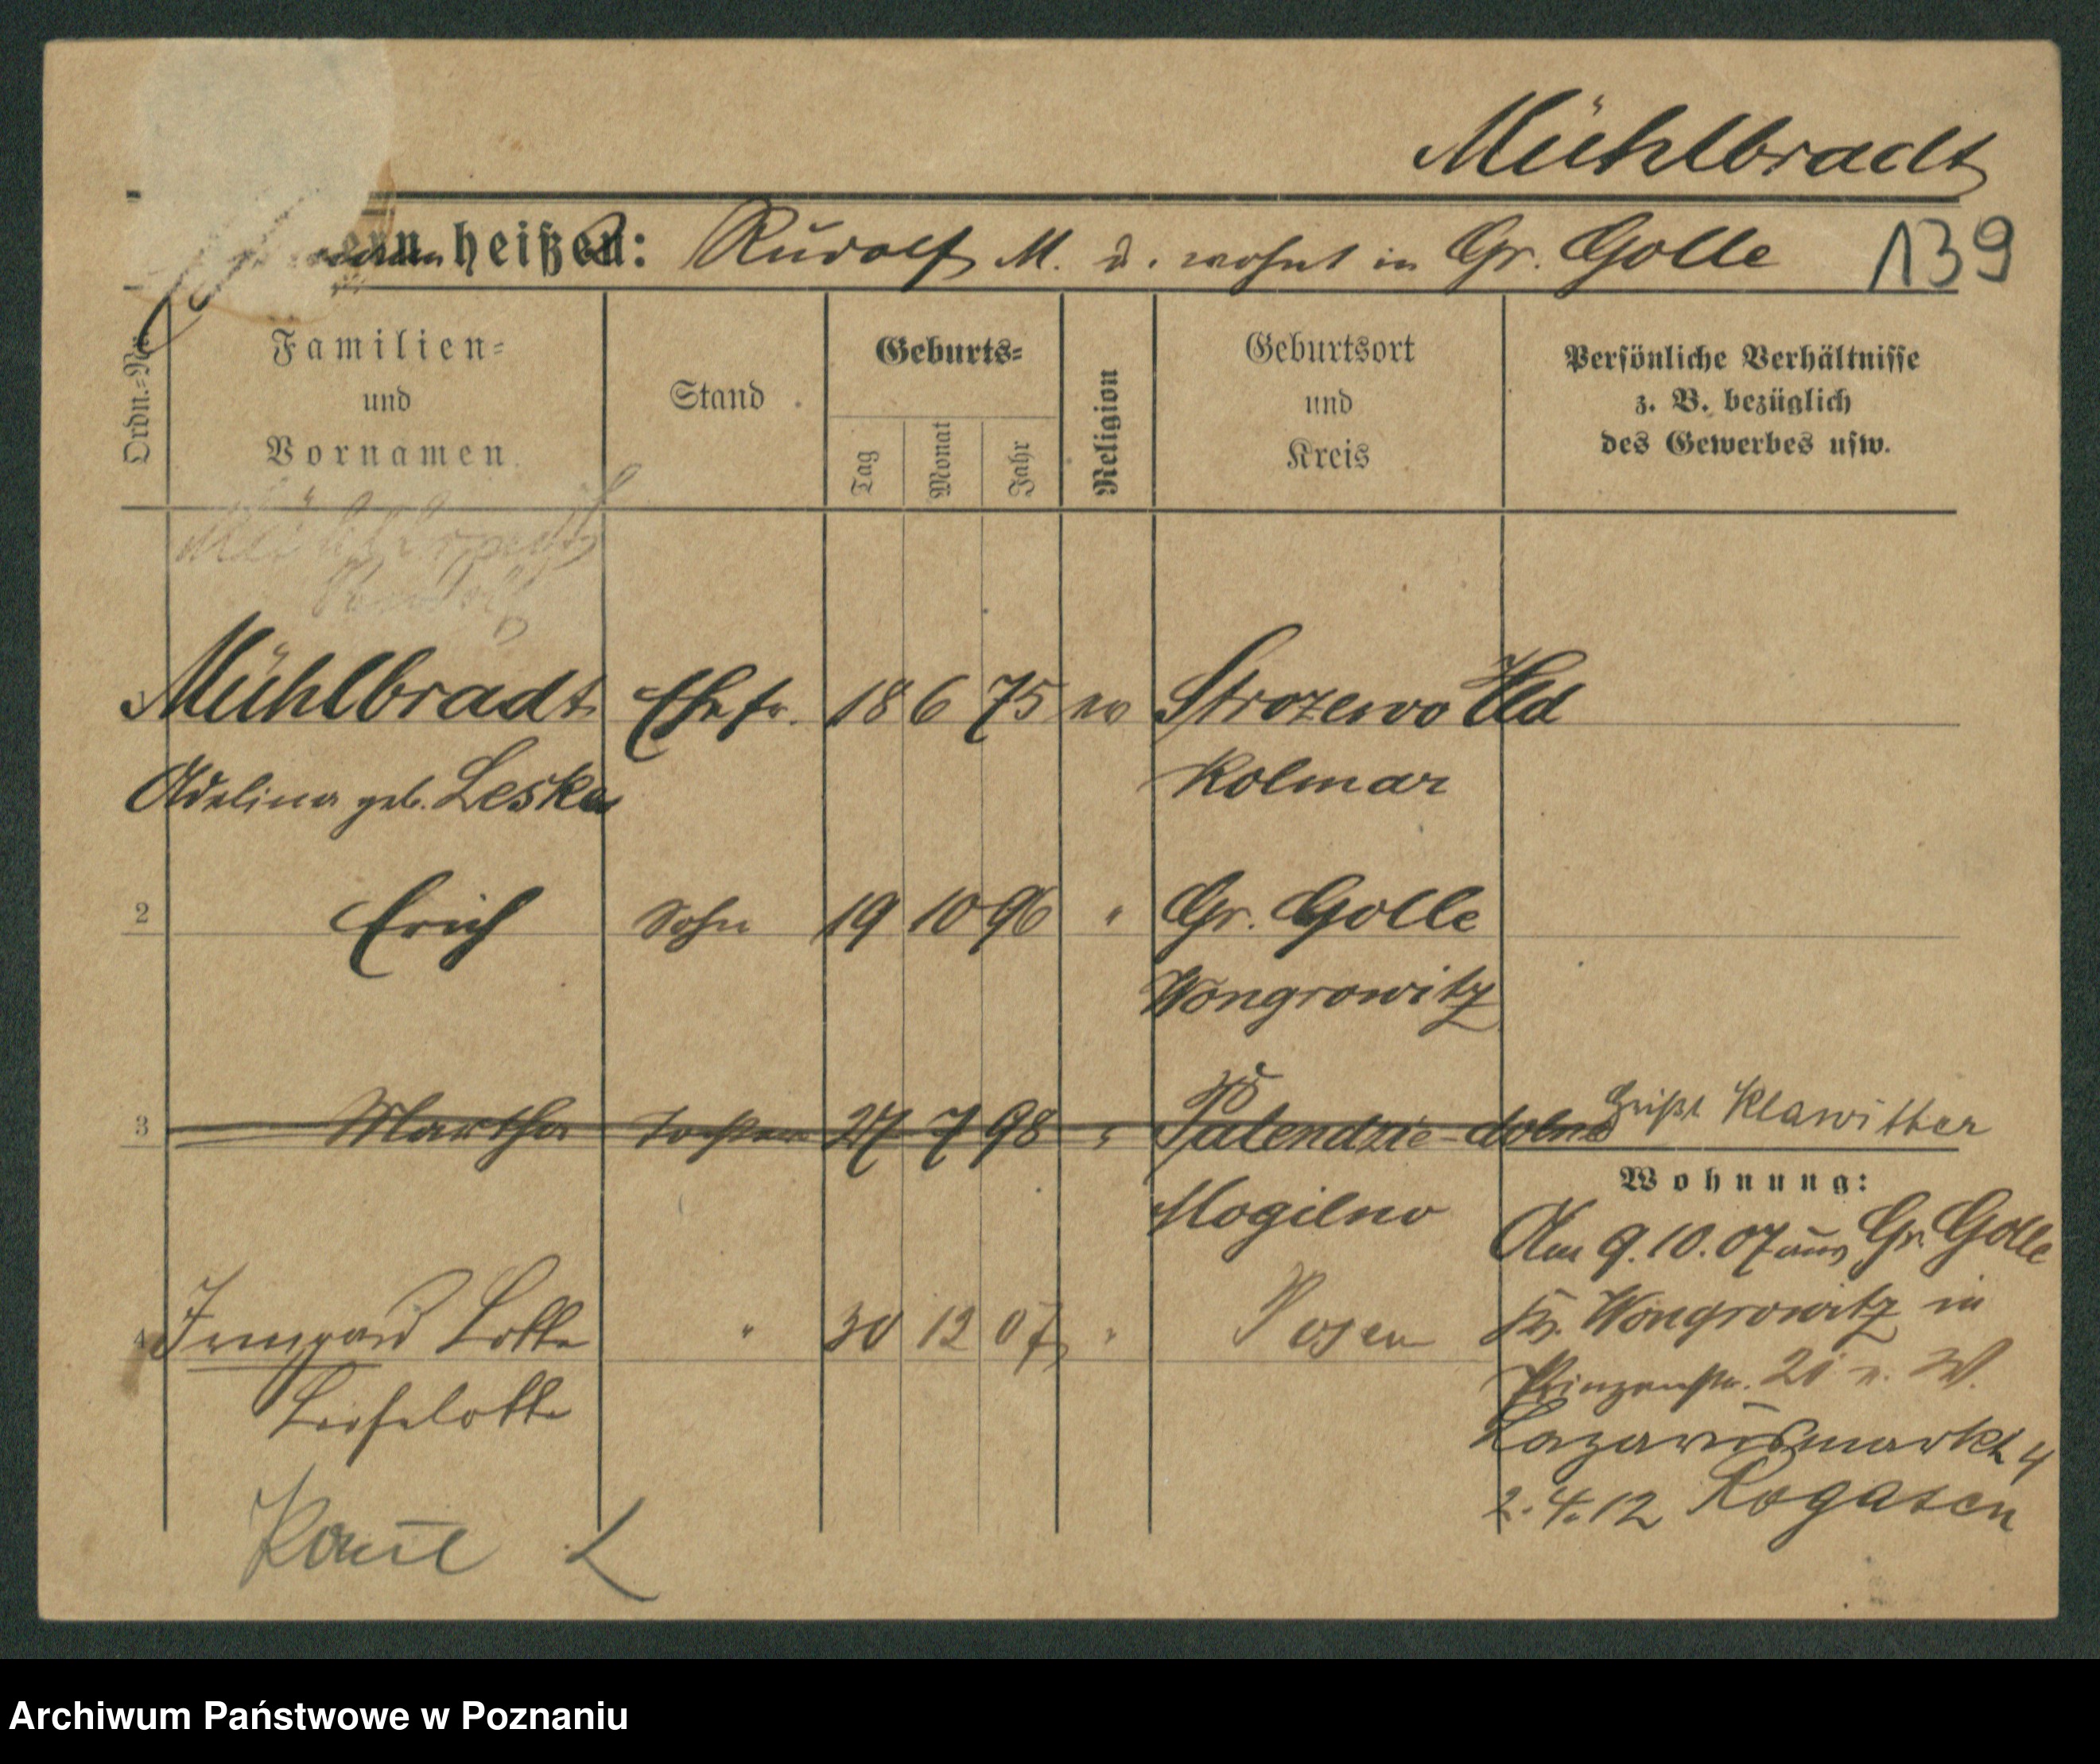 Mühlbradt
ern heißen: Rudolf M. u. wohnt in Gr. Golle 139
Ordn.=Nr.
Familien=
und
Vornamen
Stand
Geburts=
Tag Monat Jahr
Religion
Geburtsort
und
Kreis
Persönliche Verhältnisse
z. B. bezüglich
des Gewerbes usw.
Mühlbradt Ehefr. 18 6 75 ev Strozewo Hld
Adelina geb. Leske Kolmar
2 Erich Sohn 19 10 96 " Gr. Golle
Wongrowitz
3 Martha Tochter 27 7 98 " Palendzie dolne heißt Klawitter
Mogilno
Wohnung:
Am 9.10.07 aus Gr. Golle
Kr. Wongrowitz in
4 Irmgard Lotte " 30 12 07 " Posen
Prinzenstr. 21 n. W.
Lieselotte
Lazarusmarkt 4
2.4.12 Rogasen
L
Archiwum Państwowe w Poznaniu